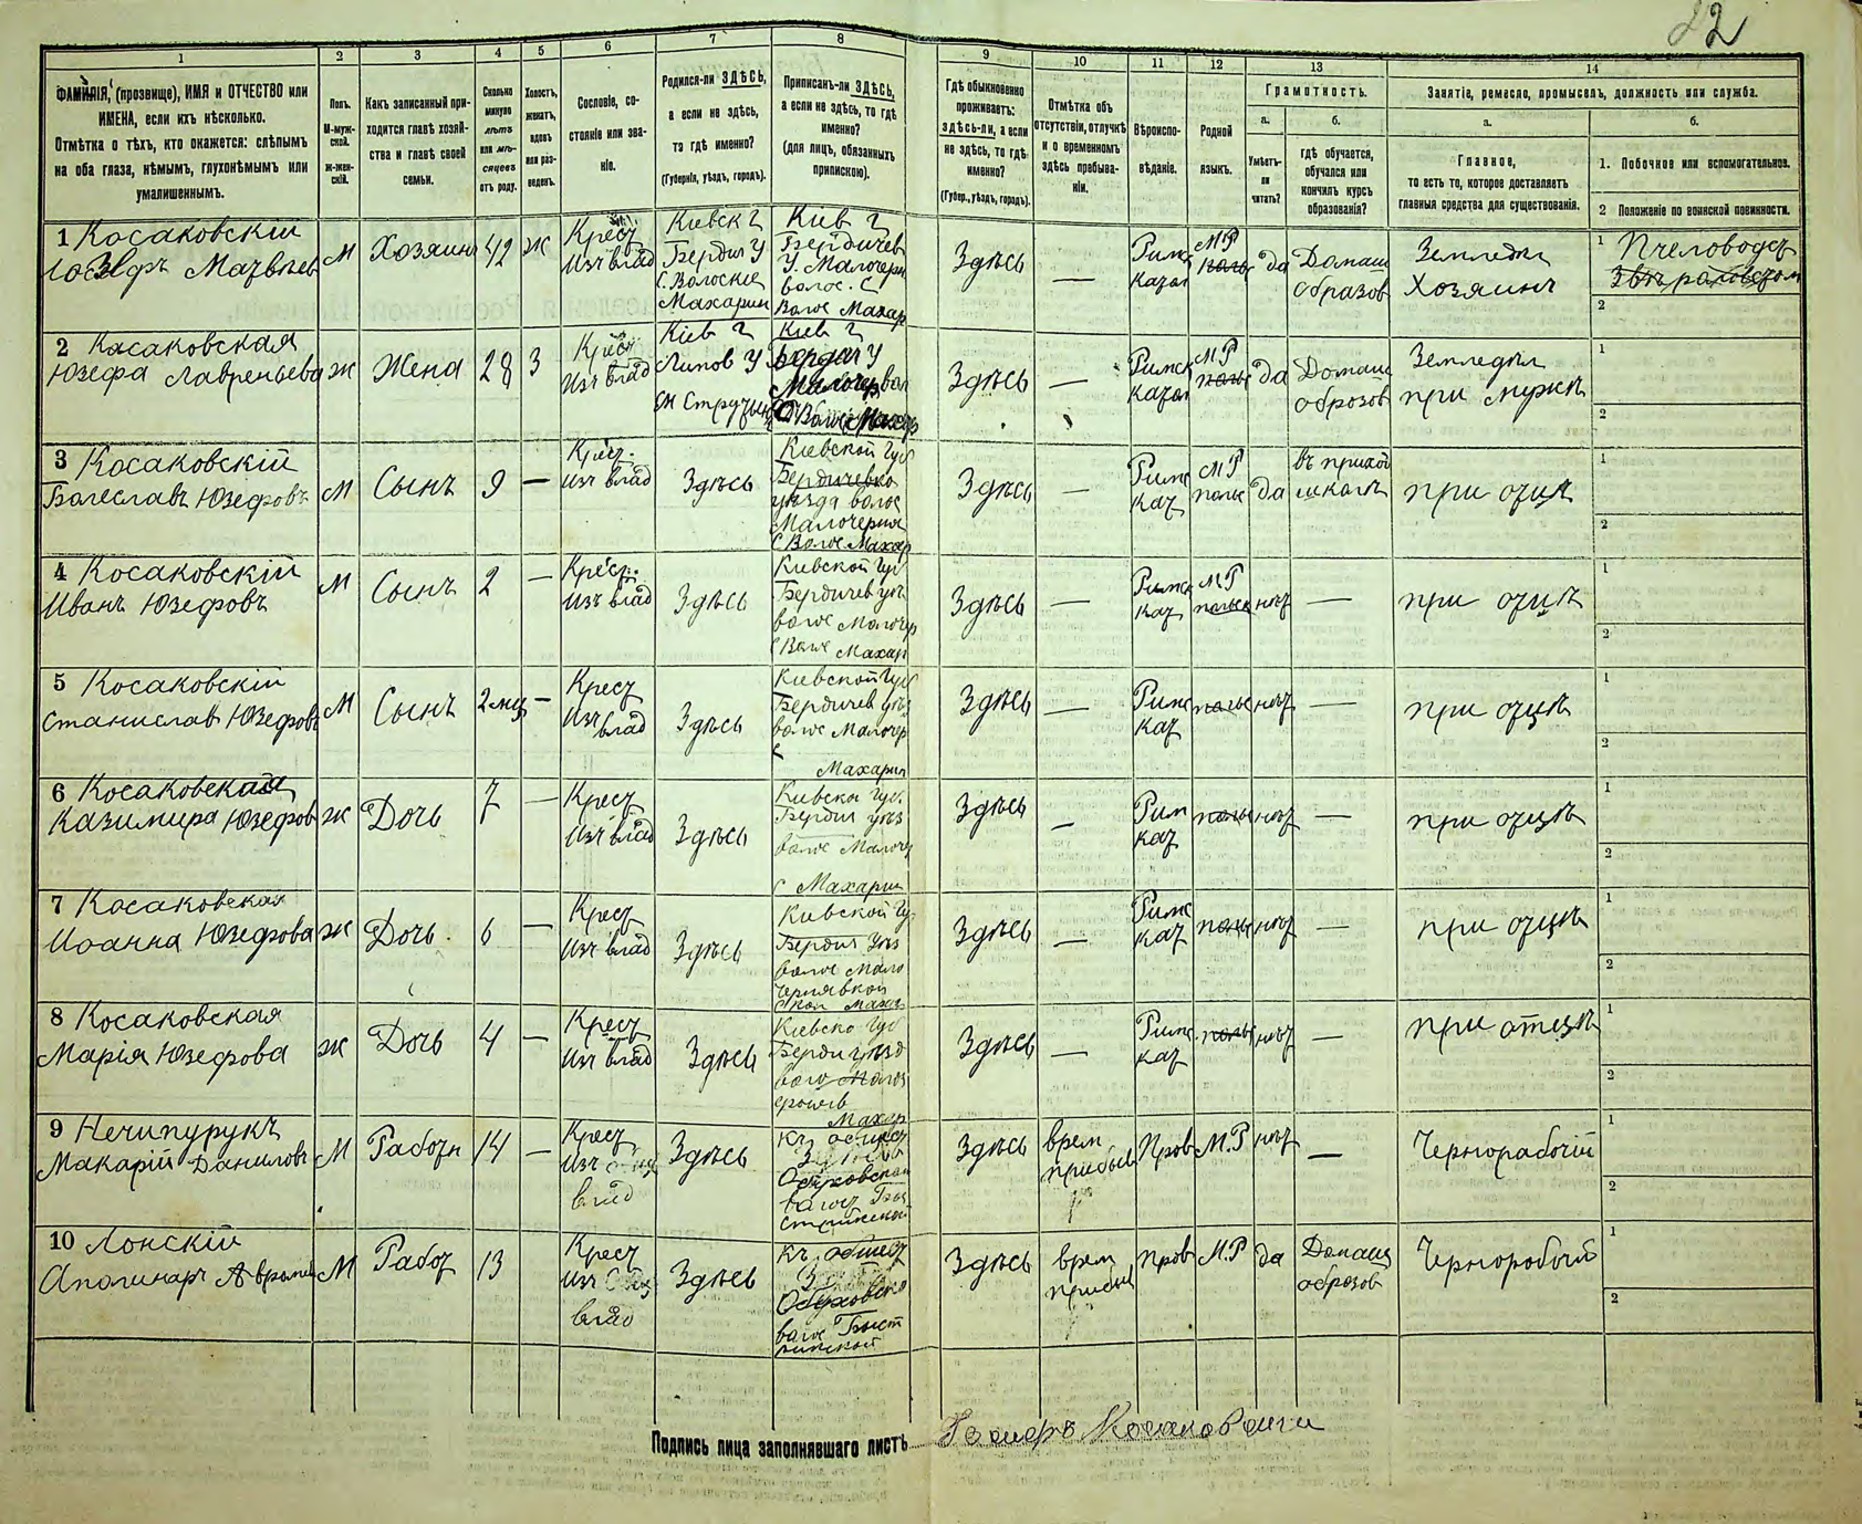 22
1
2
3
4
5
6
7
8
9
10
11
12
13
14
ФАМИЛІЯ, (прозвище), ИМЯ и ОТЧЕСТВО или
ИМЕНА, если ихъ нѣсколько.
Отмѣтка о тѣхъ, кто окажется: слѣпымъ
на оба глаза, нѣмымъ, глухонѣмымъ или
умалишеннымъ.
Полъ.
М-муж-
ской.
ж-жен-
скій.
Какъ записанный при-
ходится главѣ хозяй-
ства и главѣ своей
семьи.
Сколько
минуло
лѣтъ
или мѣ-
сяцевъ
отъ роду.
Холостъ,
женатъ,
вдовъ
или раз-
веденъ.
Сословіе, со-
стояніе или зва-
ніе.
Родился-ли ЗДѢСЬ,
а если не здѣсь,
то гдѣ именно?
(Губернія, уѣздъ, городъ).
Приписанъ-ли ЗДѢСЬ,
а если не здѣсь, то гдѣ
именно?
(для лицъ, обязанныхъ
припискою).
Гдѣ обыкновенно
проживаетъ:
здѣсь-ли, а если
не здѣсь, то гдѣ
именно?
(Губер., уѣздъ, городъ).
Отмѣтка объ
отсутствіи, отлучкѣ
и о временномъ
здѣсь пребыва-
ніи.
Вѣроиспо-
вѣданіе.
Родной
языкъ.
Грамотность.
а.
Умѣетъ-
ли
читать?
б.
гдѣ обучается,
обучался или
кончилъ курсъ
образованія?
Занятіе, ремесло, промыселъ, должность или служба.
а.
Главное,
то есть то, которое доставляетъ
главныя средства для существованія.
б.
1. Побочное или вспомогательное.
2 Положеніе по воинской повинности.
1 Косаковскій
Юзефъ Матвѣев
М
Хозяинъ
42
ж
Крест
изъ влад
Кіевск г
Бердич У
С. Волоскіе
Махарин
Кіев г
Бердичев
У. Малочерн
волос. С
Волос Махар
Здѣсь
—
Римс
Катол
М Р
поль
да
Домаш
образов
Земледѣл
Хозяинъ
1 Пчеловодст
2
2 Касаковская
Юзефа Лавреньева
ж
Жена
28
З
Крест
изъ влад
Кіев г
Липов У
Кіев г
Бердич У
Малочер вол
С Волос Махар
Здѣсь
—
Римск
Катол
М Р
поль
да
Домаш
оброзов
Земледѣл
при мужѣ
1
2
3 Косаковскій
Болеславъ Юзефовъ
М
Сынъ
9
—
Крест.
изъ влад
Здѣсь
Кіевской Губ
Бердичевко
уѣзда волос
Малочерня
С Волос Махар
Здѣсь
—
Римс
Кат
М Р
польс
да
въ приход
школѣ
при отцѣ
1
2
4 Косаковскій
Иванъ Юзефовъ
М
Сынъ
2
—
Крест.
изъ влад
Здѣсь
Кіевской Губ
Бердичев уѣз
волос Малочер
С Волос Махар
Здѣсь
—
Римс
кат
М Р
польск
нѣт
—
при отцѣ
1
2
5 Косаковскій
Станислав Юзефовъ
М
Сынъ
2 мц
—
Крест
изъ влад
Здѣсь
Кіевской Губ
Бердичев уѣз
волос Малочер
с
Махарин
Здѣсь
—
Римс
кат
польс
нѣт
—
при отцѣ
1
2
6 Косаковская
Казимира Юзефов
ж
Дочь
7
—
Крест
изъ влад
Здѣсь
Кіевско Губ.
Бердич уѣз
волос Малоче
с Махарин
Здѣсь
—
Рим
кат
польс
нѣт
—
при отцѣ
1
2
7 Косаковская
Иоанна Юзефова
ж
Дочь.
6
—
Крест
изъ влад
Здѣсь
Кіевской Гу
Бердич Уѣз
волос Мало
чернявкой
Здѣсь
—
Римс
кат
польс
нѣт
—
при отцѣ
1
2
8 Косаковская
Марія Юзефова
ж
Дочь
4
—
Крест
изъ влад
Здѣсь
Кіевско Губ
Берди уѣзд
Махар
Здѣсь
—
Римс
кат
польс
нѣт
—
при отецѣ
1
2
9 Нечипурукъ
Макарій Даниловъ
М
Работн
14
—
Крест
изъ
влад
Здѣсь
къ общест
Обуховской
волост
Здѣсь
врем
прибыв
Пров
М.Р
нѣт
—
Чернорабочій
1
2
10 Лонскій
Аполинаръ Аврами
М
Работ
13
Крест
изъ
влад
Здѣсь
къ общест
Обуховско
волос Быст
Здѣсь
врем
прибыв
Пров
М.Р
да
Домащ
оброзов
Черноробочій
1
2
Подпись лица заполнявшаго листъ
Косаковски